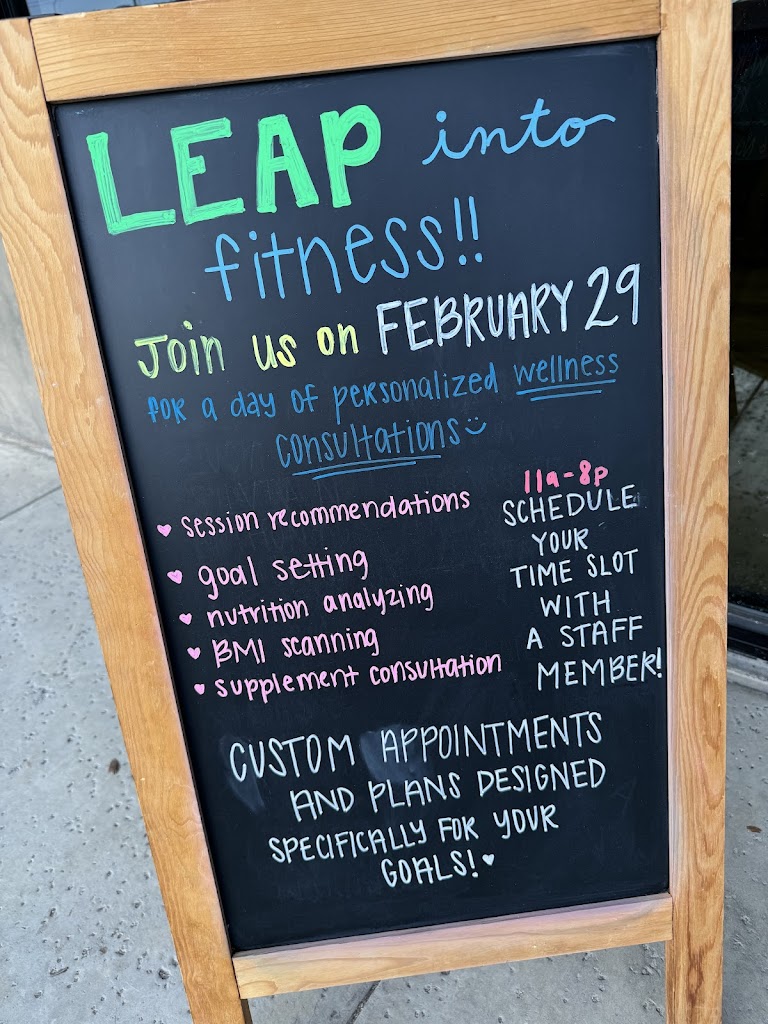 LEAP into
fitness!!
Join us on FEBRUARY 29
for a day of personalized wellness
consultations
♥ session recommendations
♥ goal setting
♥ nutrition analyzing
♥ BMI scanning
♥ supplement consultation
11a-8p
SCHEDULE
YOUR
TIME SLOT
WITH
A STAFF
MEMBER!
CUSTOM APPOINTMENTS
AND PLANS DESIGNED
SPECIFICALLY FOR YOUR
GOALS! ♥